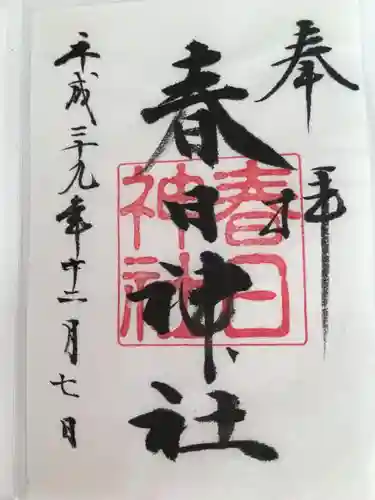 奉拝
春日神社
春日神社
平成二十九年十二月七日